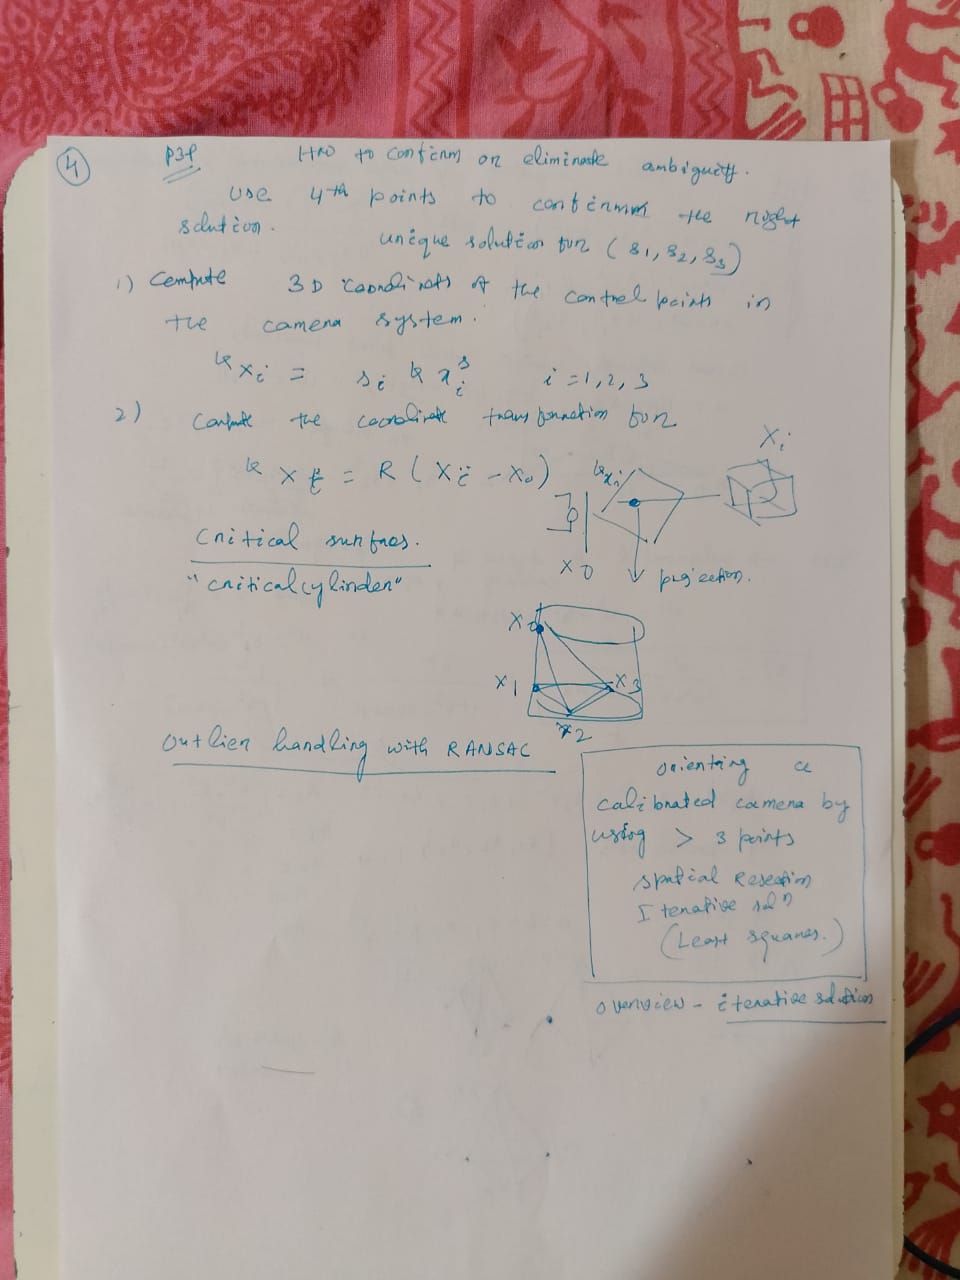 4
P3P How to confirm or eliminate ambiguity.
Use 4th points to confirmm the right
solution.
unique solution for (s1, s2, s3)
1) Compute 3D coordinats of the control points in
the camera system.
k x i = s i k x i s i = 1, 2, 3
2) Compute the coordinate transformation for
k X i = R (X i - X o)
k x i
X i
X o
projection.
Critical surfaces.
"critical cylinder"
X o
X 1
X 3
X 2
Outlier handling with RANSAC
Orienting a
calibrated camera by
using > 3 points
spatial Resection
Iterative sol n
(Least squares.)
overview - iterative solution